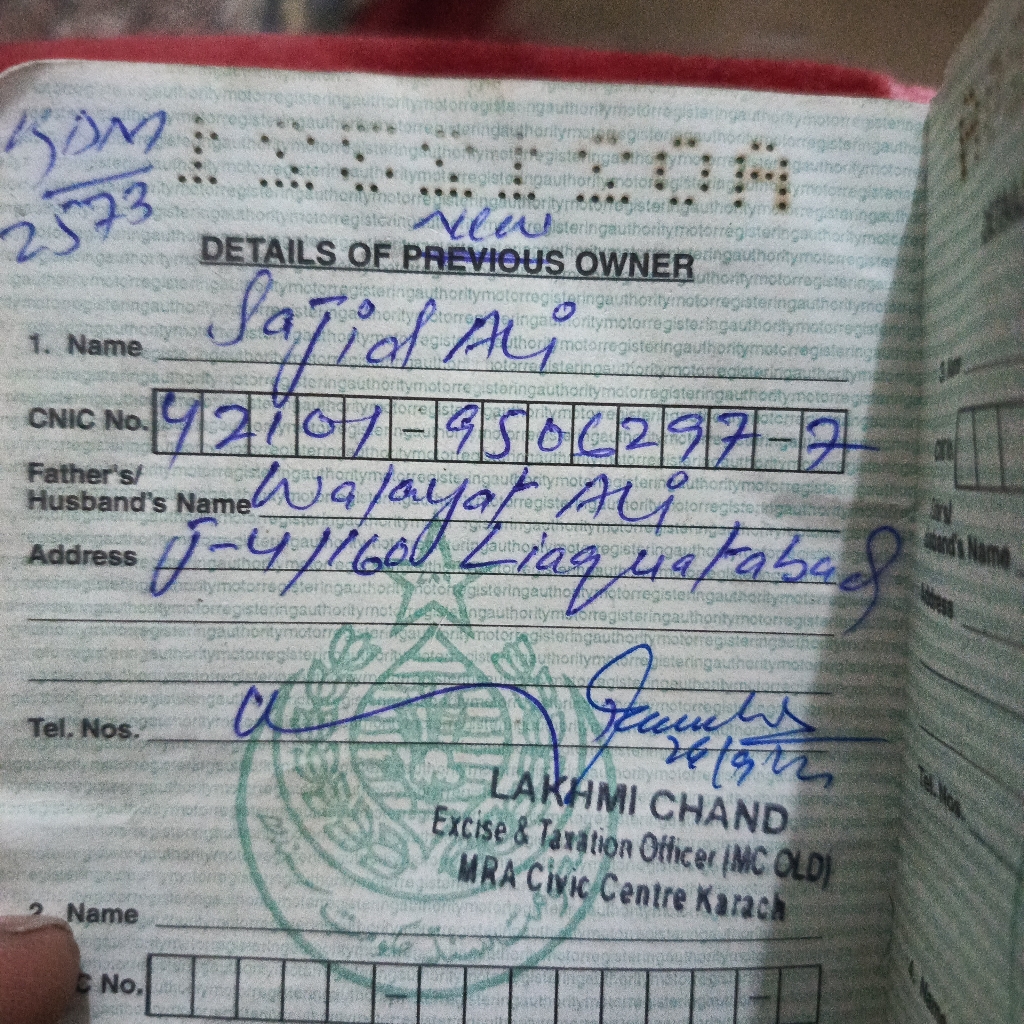 KDM
2573
new
DETAILS OF PREVIOUS OWNER
1. Name Sajid Ali
CNIC No. 42101-9506297-7
Father's/
Husband's Name Walayat Ali
Address J-4/1160 Liaquatabad
Tel. Nos.
26/9/22
LAKHMI CHAND
Excise & Taxation Officer (MC OLD)
MRA Civic Centre Karach
2. Name
C No.